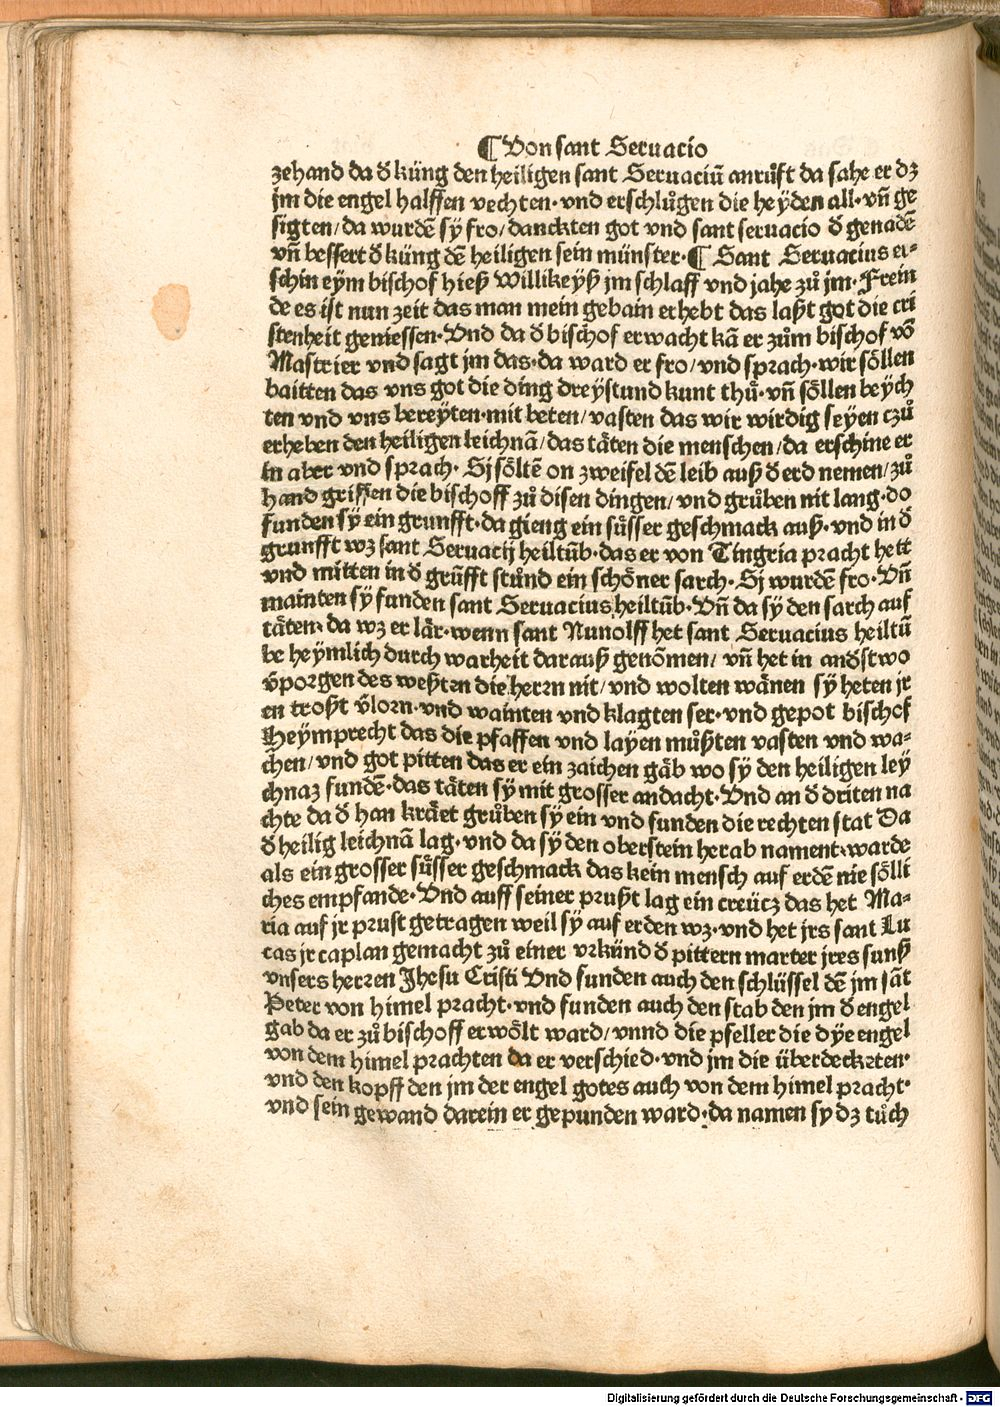 ¶ Von sant Seruacio
zehand da d̕ küng den heiligen sant Seruaciū anrůft da sahe er dz
jm die engel halffen vechten· vnd erschlůgen die heyden all· vn̄ ge
sigten/ da wurdē sy fro/ danckten got vnd sant seruacio d̕ genadē
vn̄ bessert d̕ küng dē heiligen sein münster· ¶ Sant Seruacius er⸗
schin eym bischof hieß Willikeyß jm schlaff vnd jahe zů jm· Frein
de es ist nun zeit das man mein gebain erhebt das laßt got die cri
stenheit geniessen· Vnd da d̕ bischof erwacht kā er zům bischof vō
Mastrier vnd sagt jm das· da ward er fro/ vnd sprach· wir söllen
baitten das vns got die ding dreystund kunt thů· vn̄ söllen beych
ten vnd vns bereyten· mit beten/ vasten das wir wirdig seyen czů
erheben den heiligen leichnā/ das täten die menschen/ da erschine er
in aber vnd sprach· Sj söltē on zweifel dē leib auß d̕ erd nemen/ zů
hand griffen die bischoff zů disen dingen/ vnd grůben nit lang· do
funden sy ein grunfft· da gieng ein süsser geschmack auß· vnd in d̕
grunfft wz sant Seruacij heiltūb· das er von Tingria pracht hett
vnd mitten in d̕ grūfft stůnd ein schöner sarch· Sj wurdē fro· Vn̄
mainten sy funden sant Seruacius heiltūb· Vn̄ da sy den sarch auf
täten· da wz er lär· wenn sant Nunolff het sant Seruacius heiltū
be heymlich durch warheit darauß genōmen/ vn̄ het in and̕stwo
v̕porgen des weßten die herrn nit/ vnd wolten wänen sy heten jr
en troßt v̕lorn· vnd wainten vnd klagten ser· vnd gepot bischof
Heymprecht das die pfaffen vnd layen můßten vasten vnd wa⸗
chen/ vnd got pitten das er ein zaichen gäb wo sy den heiligen ley
chnaz fundē· das täten sy mit grosser andacht· Vnd an d̕ driten na
chte da d̕ han kräet grůben sy ein vnd funden die rechten stat Da
d̕ heilig leichnā lag· vnd da sy den oberstein herab nament· warde
als ein grosser süsser geschmack das kein mensch auf erdē nie sölli
ches empfande· Vnd auff seiner prußt lag ein creücz das het Ma⸗
ria auf jr prust getragen weil sy auf erden wz· vnd het jrs sant Lu
cas jr caplan gemacht zů einer vrkünd d̕ pittern marter jres sunß
vnsers herren Jhesu Cristi Vnd funden auch den schlüssel dē jm sāt
Peter von himel pracht· vnd funden auch den stab den jm d̕ engel
gab da er zů bischoff erwölt ward/ vnnd die pfeller die dye engel
von dem himel prachten da er verschied· vnd jm die überdeckten·
vnd den kopff den jm der engel gotes auch von dem himel pracht·
vnd sein gewand darein er gepunden ward· da namen sy dz tůch
Digitalisierung gefördert durch die Deutsche Forschungsgemeinschaft - DFG